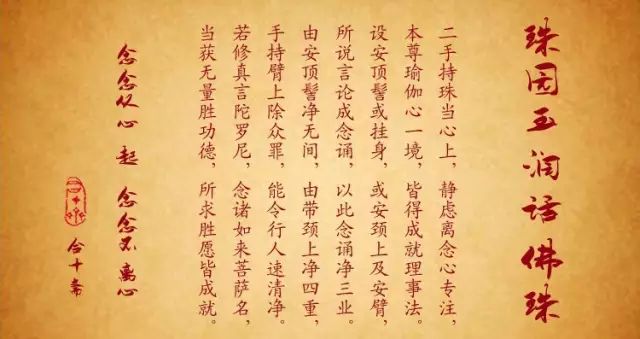 珠圆玉润话佛珠
二手持珠当心上，静虑离念心专注，
本尊瑜伽心一境，皆得成就理事法。
设安顶髻或挂身，或安颈上及安臂，
所说言论成念诵，以此念诵净三业。
由安顶髻净无间，由带颈上净四重，
手持臂上除众罪，能令行人速清净。
若修真言陀罗尼，念诸如来菩萨名，
当获无量胜功德，所求胜愿皆成就。
念念从心起 念念不离心
合十斋